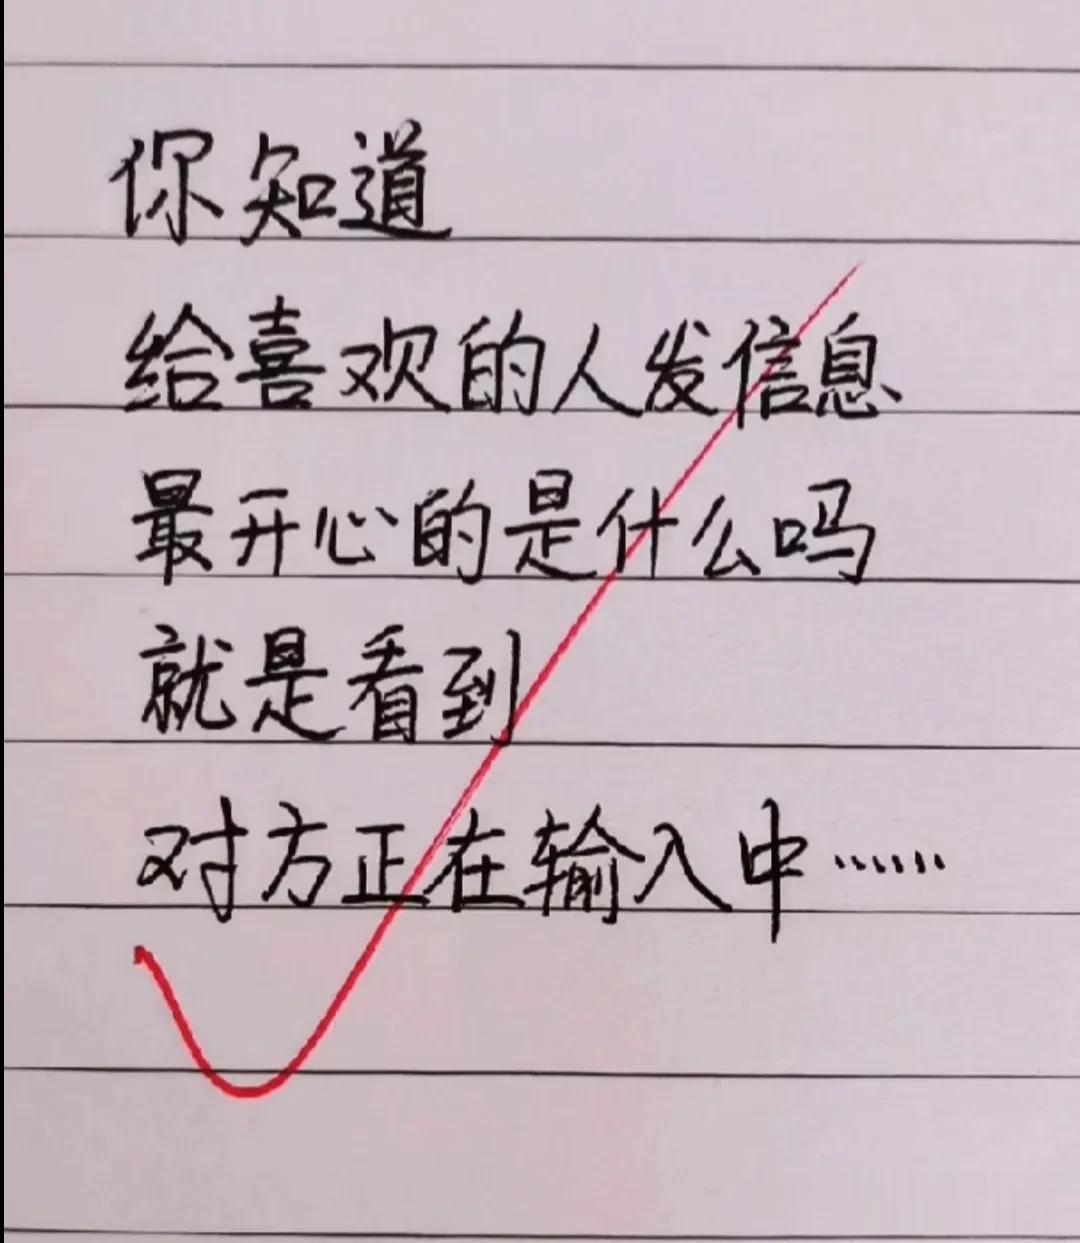 你知道
给喜欢的人发信息
最开心的是什么吗
就是看到
对方正在输入中······